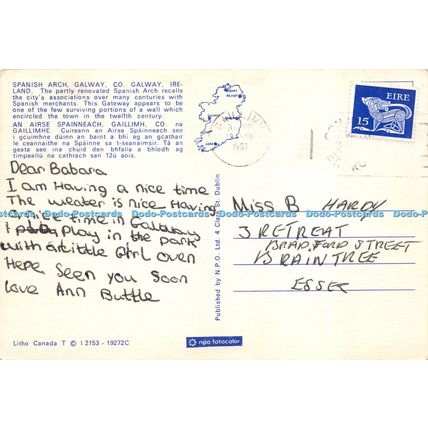 SPANISH ARCH, GALWAY, CO. GALWAY, IRE-
LAND. The partly renovated Spanish Arch recalls
the city's associations over many centuries with
Spanish merchants. This Gateway appears to be
one of the few surviving portions of a wall which
encircled the town in the twelfth century.
AN AIRSE SPAINNEACH, GAILLIMH, CO. na
GAILLIMHE. Cuireann an Airse Spáinneach seo
i gcuimhne dúinn an baint a bhí ag an gcathair
le ceannaithe na Spáinne sa t-seanaimsir. Tá an
geata seo ina chuid den bhfalla a bhíodh ag
timpeallú na cathrach san 12ú aois.
Dear Babara
I am Having a nice time
The weater is nice Having
a nice time in Galway
I play in the park
with a little Girl over
Here seen you soon
love Ann Buttle
Litho Canada T © I 2153 - 19272C
Published by N.P.O. Ltd. 4 Clare St. Dublin
npo fotocolor
1981
EIRE
15
Miss B HARDY
3 RETREAT
BRADFORD STREET
BRAINTREE
ESSEX
Dodo-Postcards Dodo-Postcards Dodo-Postcards Dodo-Postcards Dodo-Postcards Dodo-Postcards